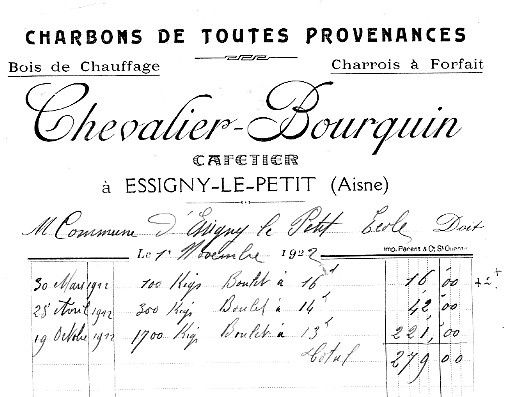 CHARBONS DE TOUTES PROVENANCES
Bois de Chauffage Charrois à Forfait
Chevalier-Bourquin
CAFETIER
à ESSIGNY-LE-PETIT (Aisne)
M Commune d'Essigny le Petit Ecole Doit
Le 1er Novembre 1922 Imp. Parent & Cie St Quentin
30 Mars 1922 100 Kigs Boulet à 16f 16,00
28 Avril 1922 300 Kigs Boulet à 14f 42,00
19 Octobre 1922 1700 Kigs Boulet à 13f 221,00
Total 279 00